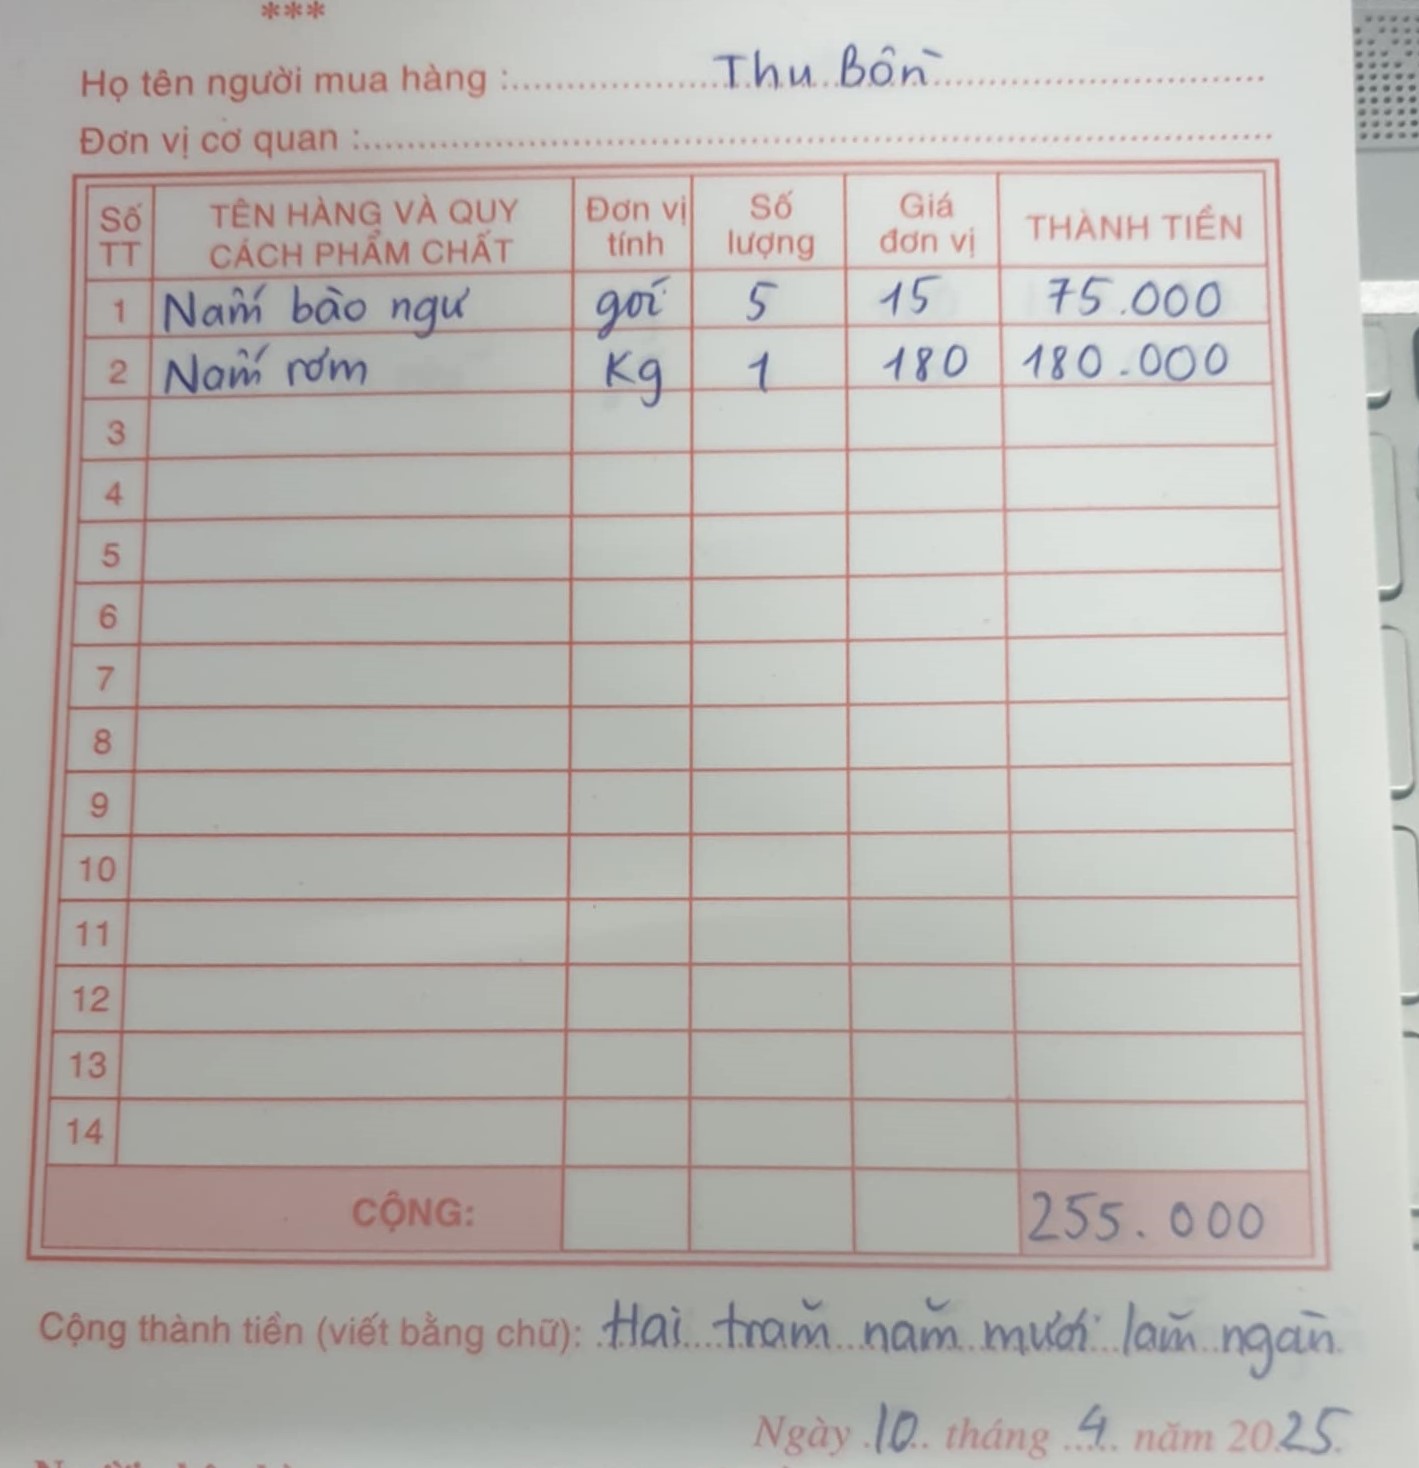 ***
Họ tên người mua hàng : Thu Bồn
Đơn vị cơ quan :
Số TT TÊN HÀNG VÀ QUY CÁCH PHẨM CHẤT Đơn vị tính Số lượng Giá đơn vị THÀNH TIỀN
1 Nấm bào ngư gói 5 15 75.000
2 Nấm rơm Kg 1 180 180.000
3
4
5
6
7
8
9
10
11
12
13
14
CỘNG: 255.000
Cộng thành tiền (viết bằng chữ): Hai trăm năm mươi lăm ngàn
Ngày 10 tháng 4 năm 2025